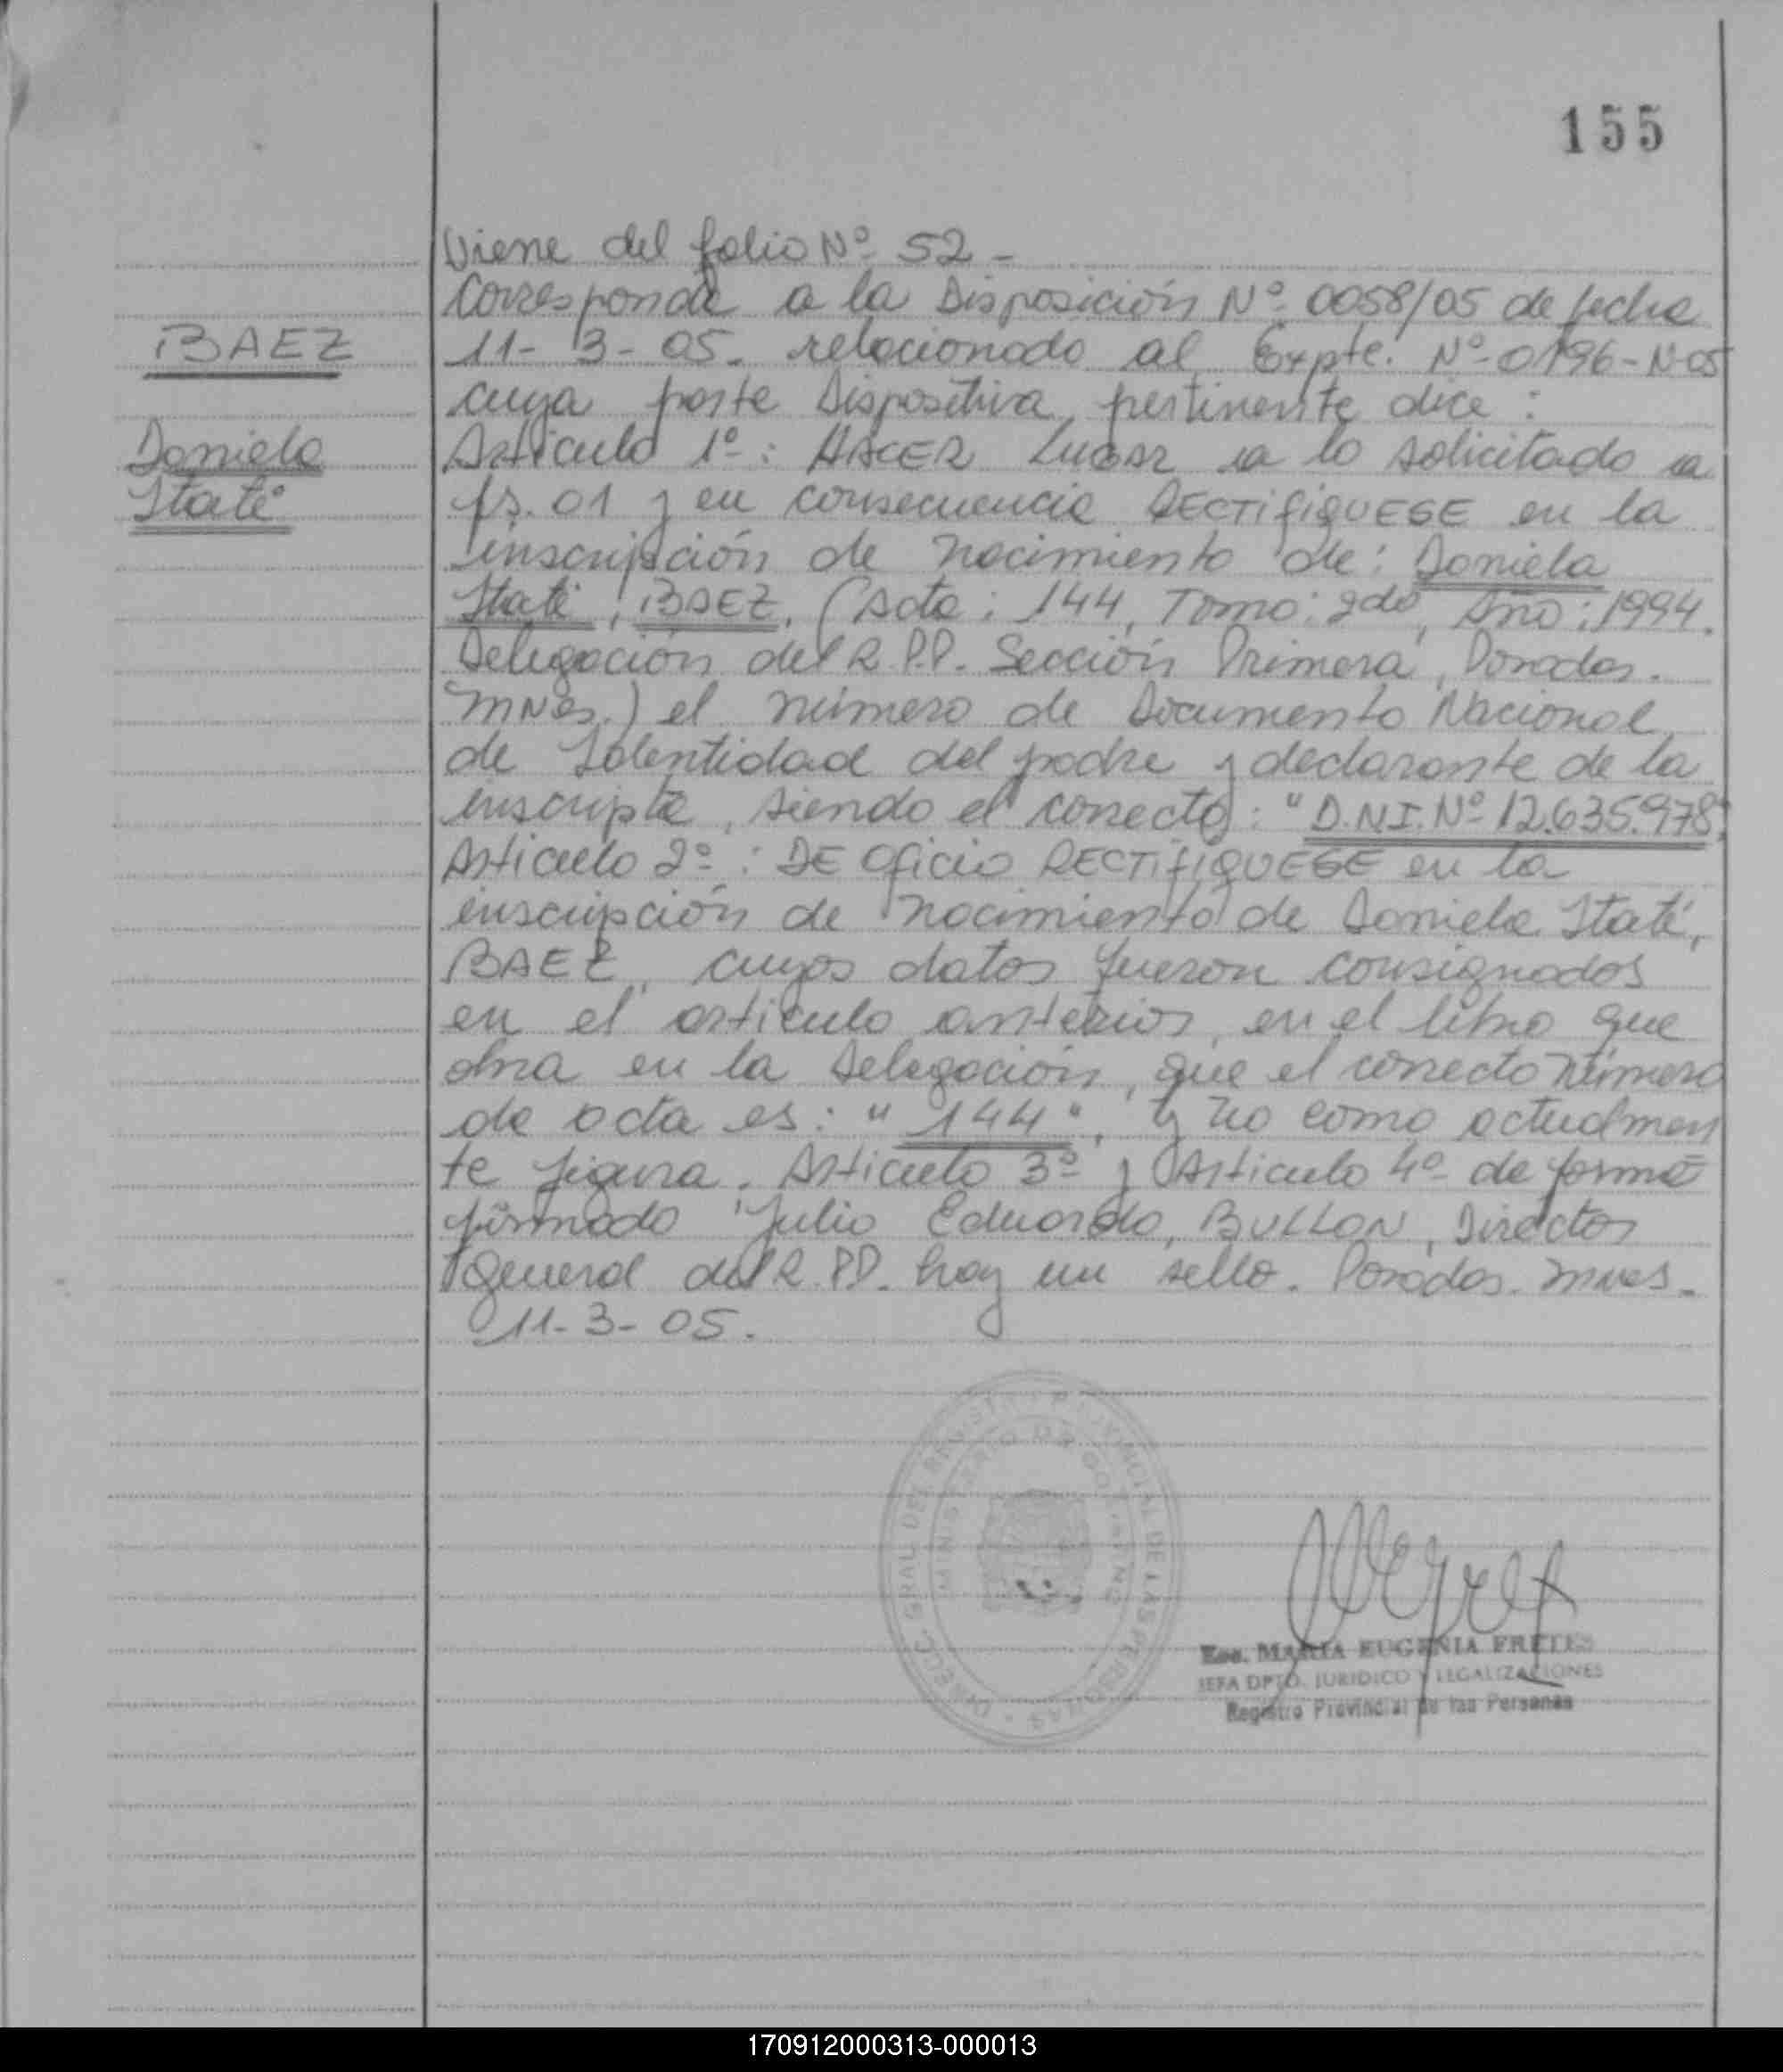 155
Viene del folio Nº 52 -
Corresponde a la Disposición Nº 0058/05 de fecha
BAEZ
11-3-05. relacionado al Expte. Nº 0196-N-05
cuya parte Dispositiva, pertinente dice :
Daniela
Itatí
Artículo 1º : HACER LUGAR a lo solicitado a
fs. 01 y en consecuencia RECTIFIQUESE en la
inscripción de nacimiento de: Daniela
Itatí, BAEZ, (Acta: 144, Tomo: 2do, Año: 1994.
Delegación del R.P.P. Sección Primera, Posadas.
Mnes.) el número de Documento Nacional
de Identidad del padre y declarante de la
inscripta, siendo el correcto: "D.N.I. Nº 12.635.978".
Artículo 2º : DE Oficio RECTIFIQUESE en la
inscripción de nacimiento de Daniela Itatí,
BAEZ, cuyos datos fueron consignados
en el artículo anterior, en el libro que
obra en la Delegación, que el correcto número
de acta es: "144", y no como actualmen
te figura. Artículo 3º y Artículo 4º de forma
firmado Julio Eduardo, BULLON, Director
General del R.P.P. hay un sello. Posadas. Mnes.
11-3-05.
DIRECC. GRAL. DEL REGISTRO PROVINCIAL DE LAS PERSONAS
MINISTERIO DE GOBIERNO
Esc. MARIA EUGENIA FRETES
JEFA DPTO. JURIDICO Y LEGALIZACIONES
Registro Provincial de las Personas
170912000313-000013